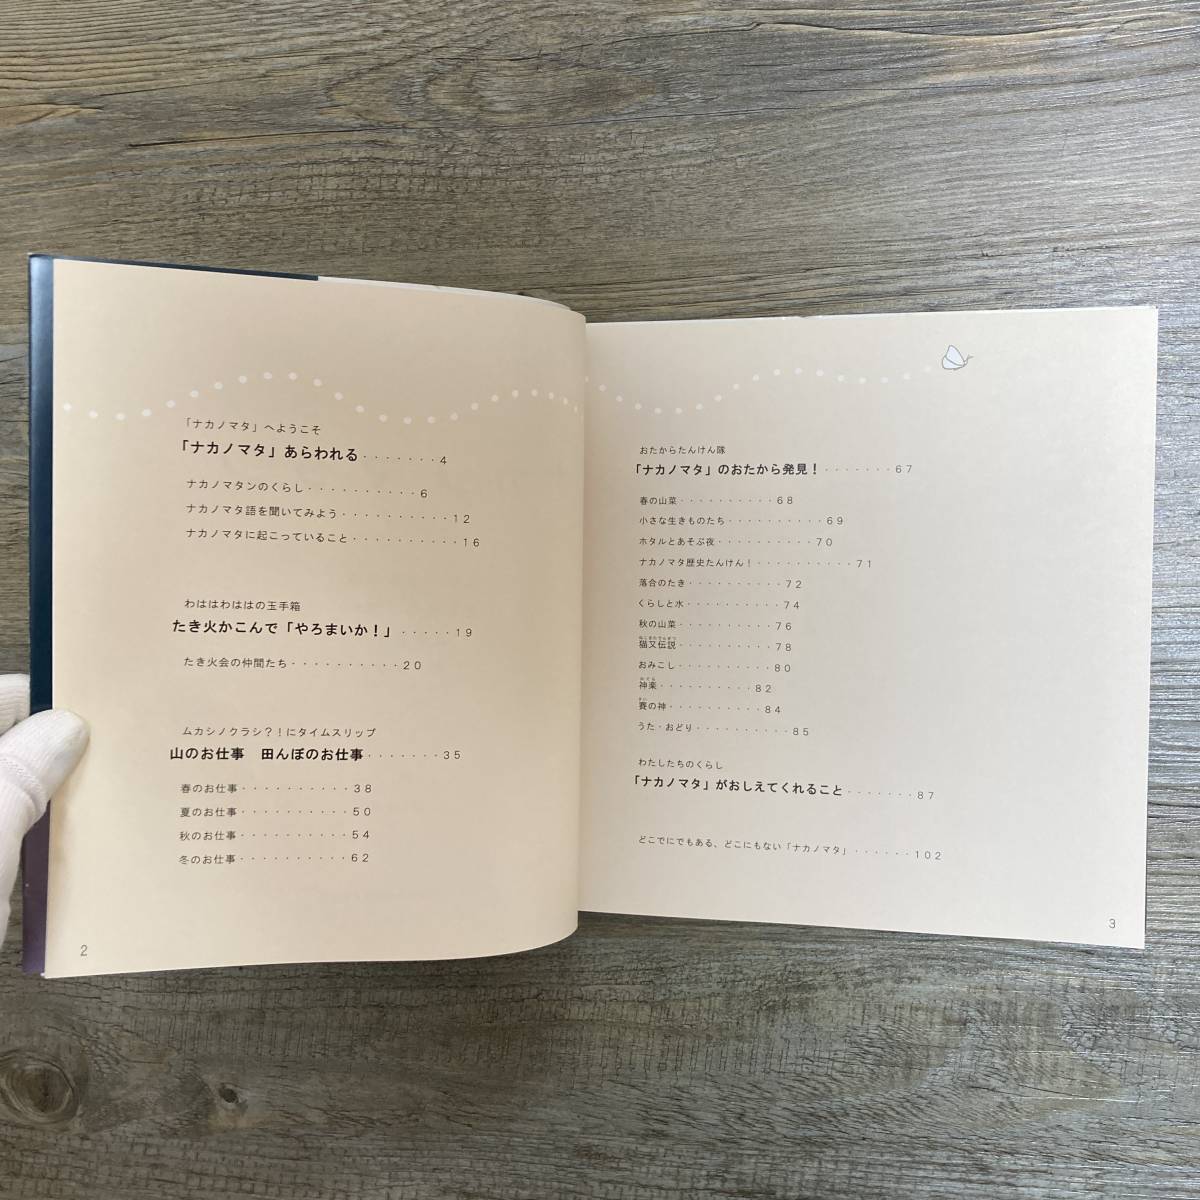 「ナカノマタ」へようこそ
「ナカノマタ」あらわれる・・・・・・・4
ナカノマタンのくらし・・・・・・・・・・6
ナカノマタ語を聞いてみよう・・・・・・・・・・12
ナカノマタに起こっていること・・・・・・・・・・16
わははわははの玉手箱
たき火かこんで「やろまいか！」・・・・・19
たき火会の仲間たち・・・・・・・・・・20
ムカシノクラシ？！にタイムスリップ
山のお仕事　田んぼのお仕事・・・・・・・35
春のお仕事・・・・・・・・・・38
夏のお仕事・・・・・・・・・・50
秋のお仕事・・・・・・・・・・54
冬のお仕事・・・・・・・・・・62
2
おたからたんけん隊
「ナカノマタ」のおたから発見！・・・・・・・67
春の山菜・・・・・・・・・・68
小さな生きものたち・・・・・・・・・・69
ホタルとあそぶ夜・・・・・・・・・・70
ナカノマタ歴史たんけん！・・・・・・・・・・71
落合のたき・・・・・・・・・・72
くらしと水・・・・・・・・・・74
秋の山菜・・・・・・・・・・76
ねこまたでんせつ
猫又伝説・・・・・・・・・・78
おみこし・・・・・・・・・・80
かぐら
神楽・・・・・・・・・・82
さい
賽の神・・・・・・・・・・84
うた・おどり・・・・・・・・・・85
わたしたちのくらし
「ナカノマタ」がおしえてくれること・・・・・・・87
どこでにでもある、どこにもない「ナカノマタ」・・・・・・102
3